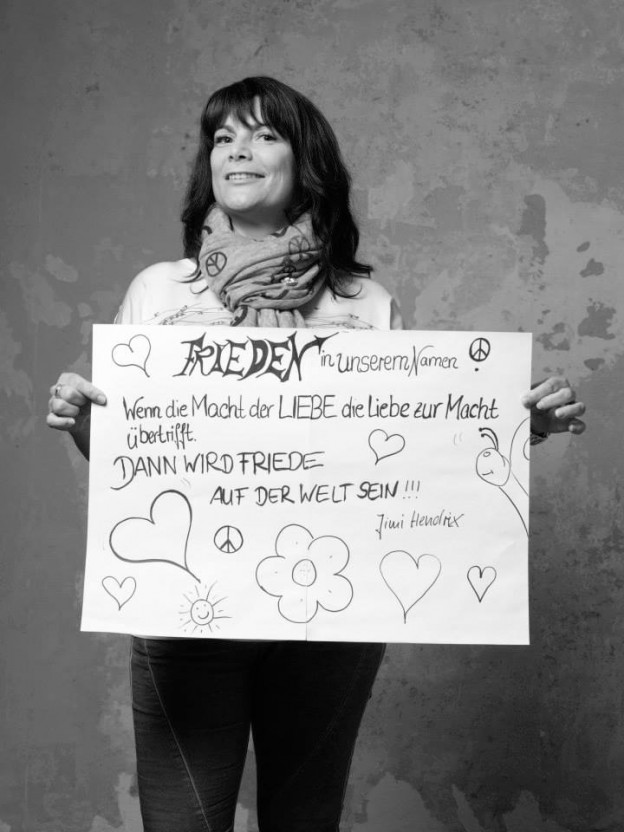 FRIEDEN in unserem Namen
Wenn die Macht der LIEBE die Liebe zur Macht
übertrifft.
DANN WIRD FRIEDE
AUF DER WELT SEIN!!!
Jimi Hendrix